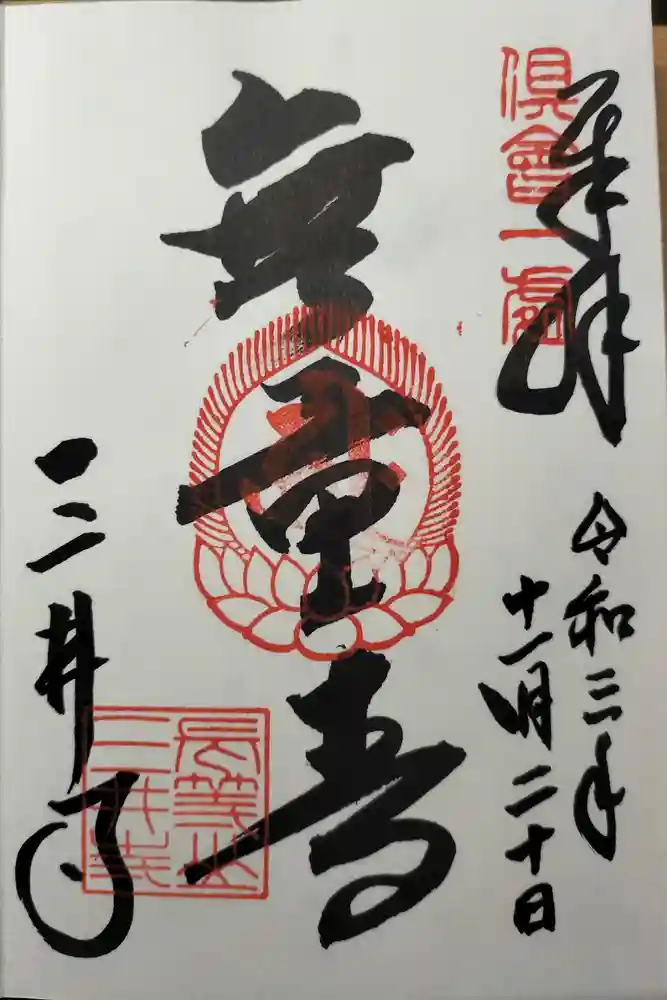 奉拝
倶會一處
令和三年
十一月二十日
無量寿
三井寺
長等山
三井寺